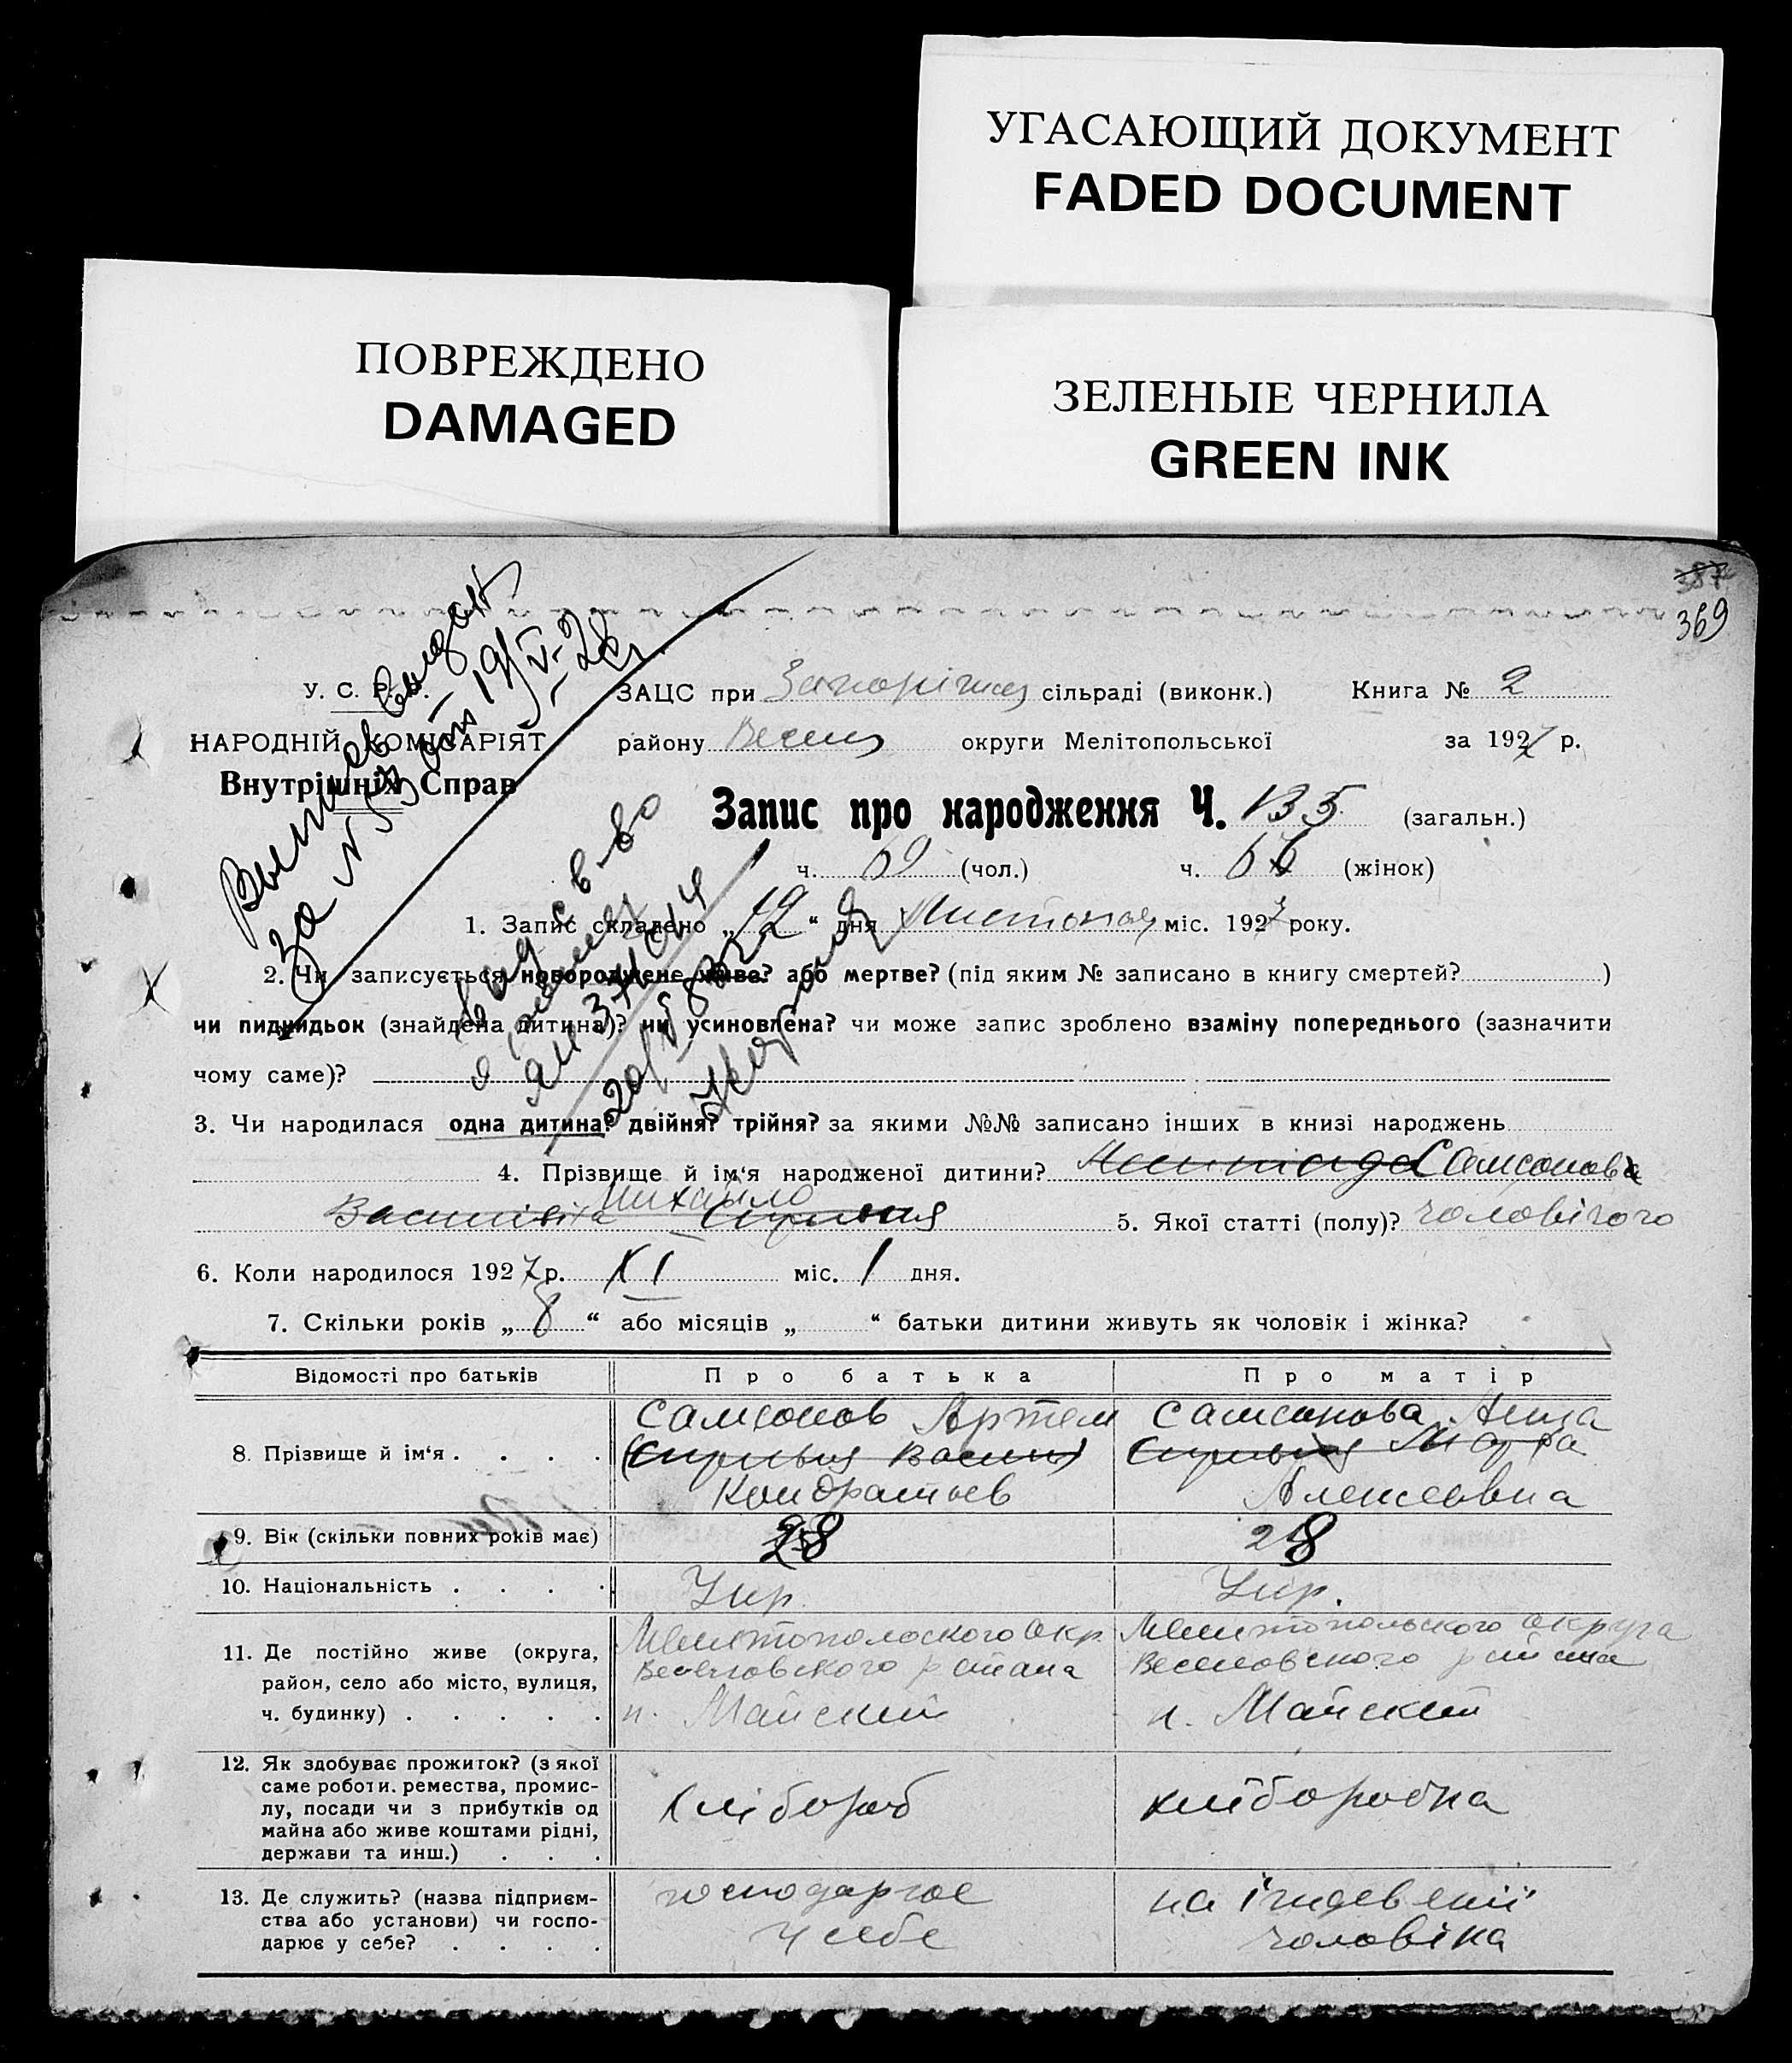 УГАСАЮЩИЙ ДОКУМЕНТ
FADED DOCUMENT
ПОВРЕЖДЕНО
DAMAGED
ЗЕЛЕНЫЕ ЧЕРНИЛА
GREEN INK
387
369
У. С. Р. Р.
НАРОДНІЙ КОМІСАРІЯТ
Внутрішніх Справ
ЗАЦС при сільраді (виконк.) Книга № 2
району Весел округи Мелітопольської за 1927 р.
Запис про народження Ч. 135 (загальн.)
ч. 69 (чол.) ч. 66 (жінок)
1. Запис складено „ 19 “ дня Листопад міс. 1927 року.
2. Чи записується новороджене живе? або мертве? (під яким № записано в книгу смертей? )
чи пиднидьок (знайдена дитина)? чи усиновлена? чи може запис зроблено взаміну попереднього (зазначити
чому саме)?
3. Чи народилася одна дитина? двійня? трійня? за якими №№ записано інших в книзі народжень
4. Прізвище й ім‘я народженої дитини? Самсонов
Михайло
5. Якої статті (полу)? чоловічого
6. Коли народилося 1927 р. XI міс. 1 дня.
7. Скільки років „ 8 “ або місяців „ “ батьки дитини живуть як чоловік і жінка?
Відомості про батьків Про батька Про матір
8. Прізвище й ім‘я . . . .
Самсонов Артем
Кондратьев
Самсонова Анна
Алексеевна
9. Вік (скільки повних років має) 28 28
10. Національність . . . . Укр. Укр.
11. Де постійно живе (округа,
район, село або місто, вулиця,
ч. будинку) . . . . .
Мелитопольского Окр.
Веселовского района
п. Майский
Мелитопольского Округа
Веселовского района
п. Майский
12. Як здобуває прожиток? (з якої
саме роботи. ремества, промис-
лу, посади чи з прибутків од
майна або живе коштами рідні,
держави та инш.) . . .
хлібороб
хліборобка
13. Де служить? (назва підприєм-
ства або установи) чи госпо-
дарює у себе? . . . .
господарює
у себе
на іждевенії
чоловіка